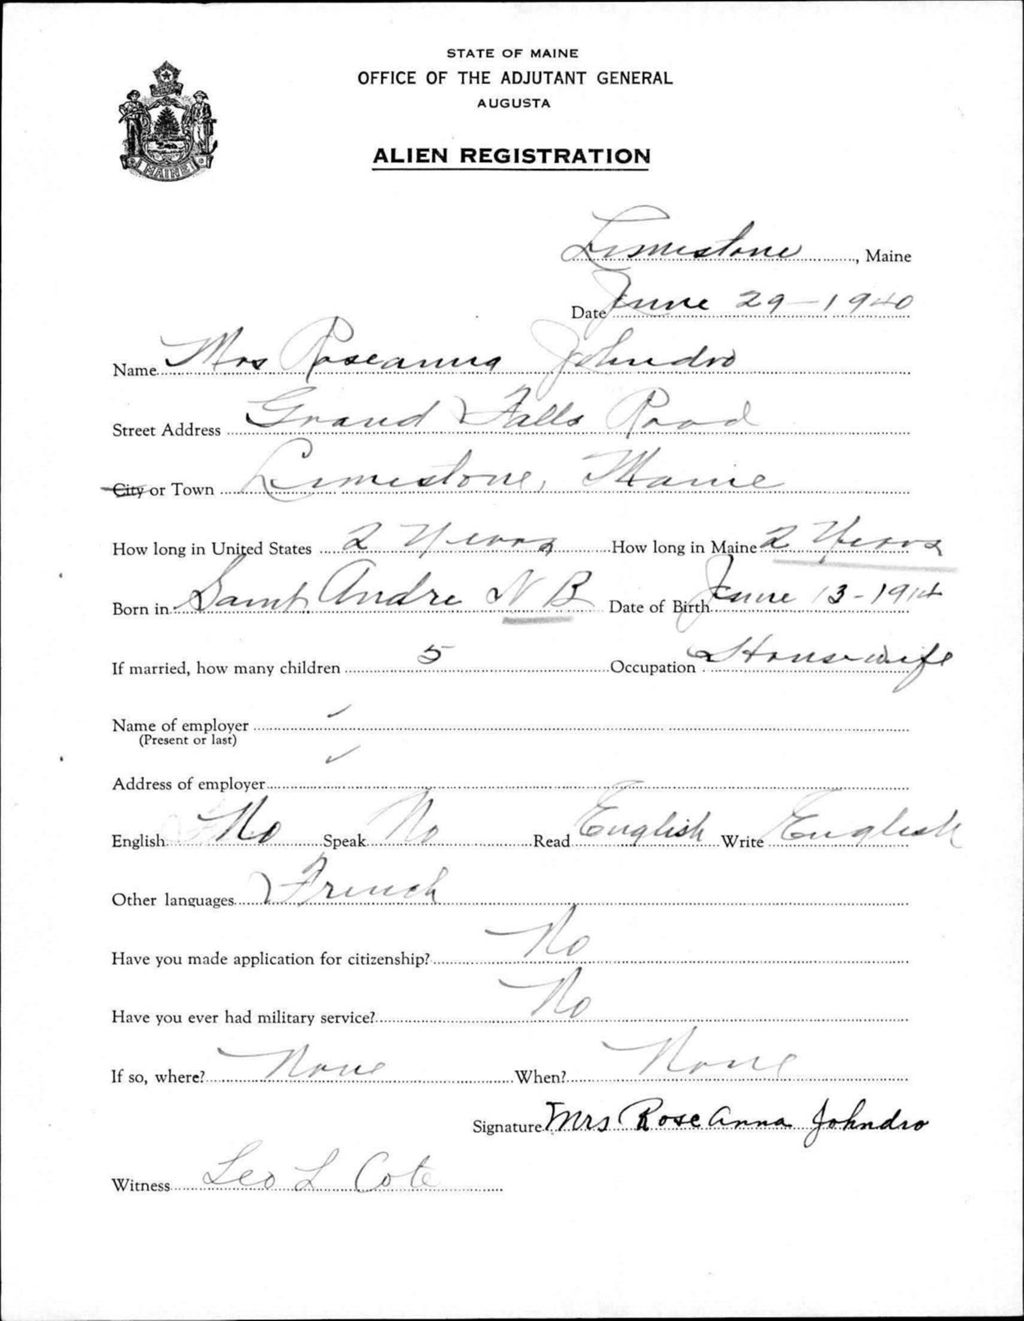 STATE OF MAINE
OFFICE OF THE ADJUTANT GENERAL
AUGUSTA
ALIEN REGISTRATION
MAINE
Limestone, Maine
Date June 29-1940
Name Mrs Roseanna Johndro
Street Address Grand Falls Road
City or Town Limestone, Maine
How long in United States 2 Years How long in Maine 2 Years
Born in Saint Andre N B Date of Birth June 13-1914
If married, how many children 5 Occupation Housewife
Name of employer ✓
(Present or last)
Address of employer ✓
English No Speak No Read English Write English
Other languages French
Have you made application for citizenship? No
Have you ever had military service? No
If so, where? None When? None
Signature Mrs Rose Anna Johndro
Witness Leo L Cote